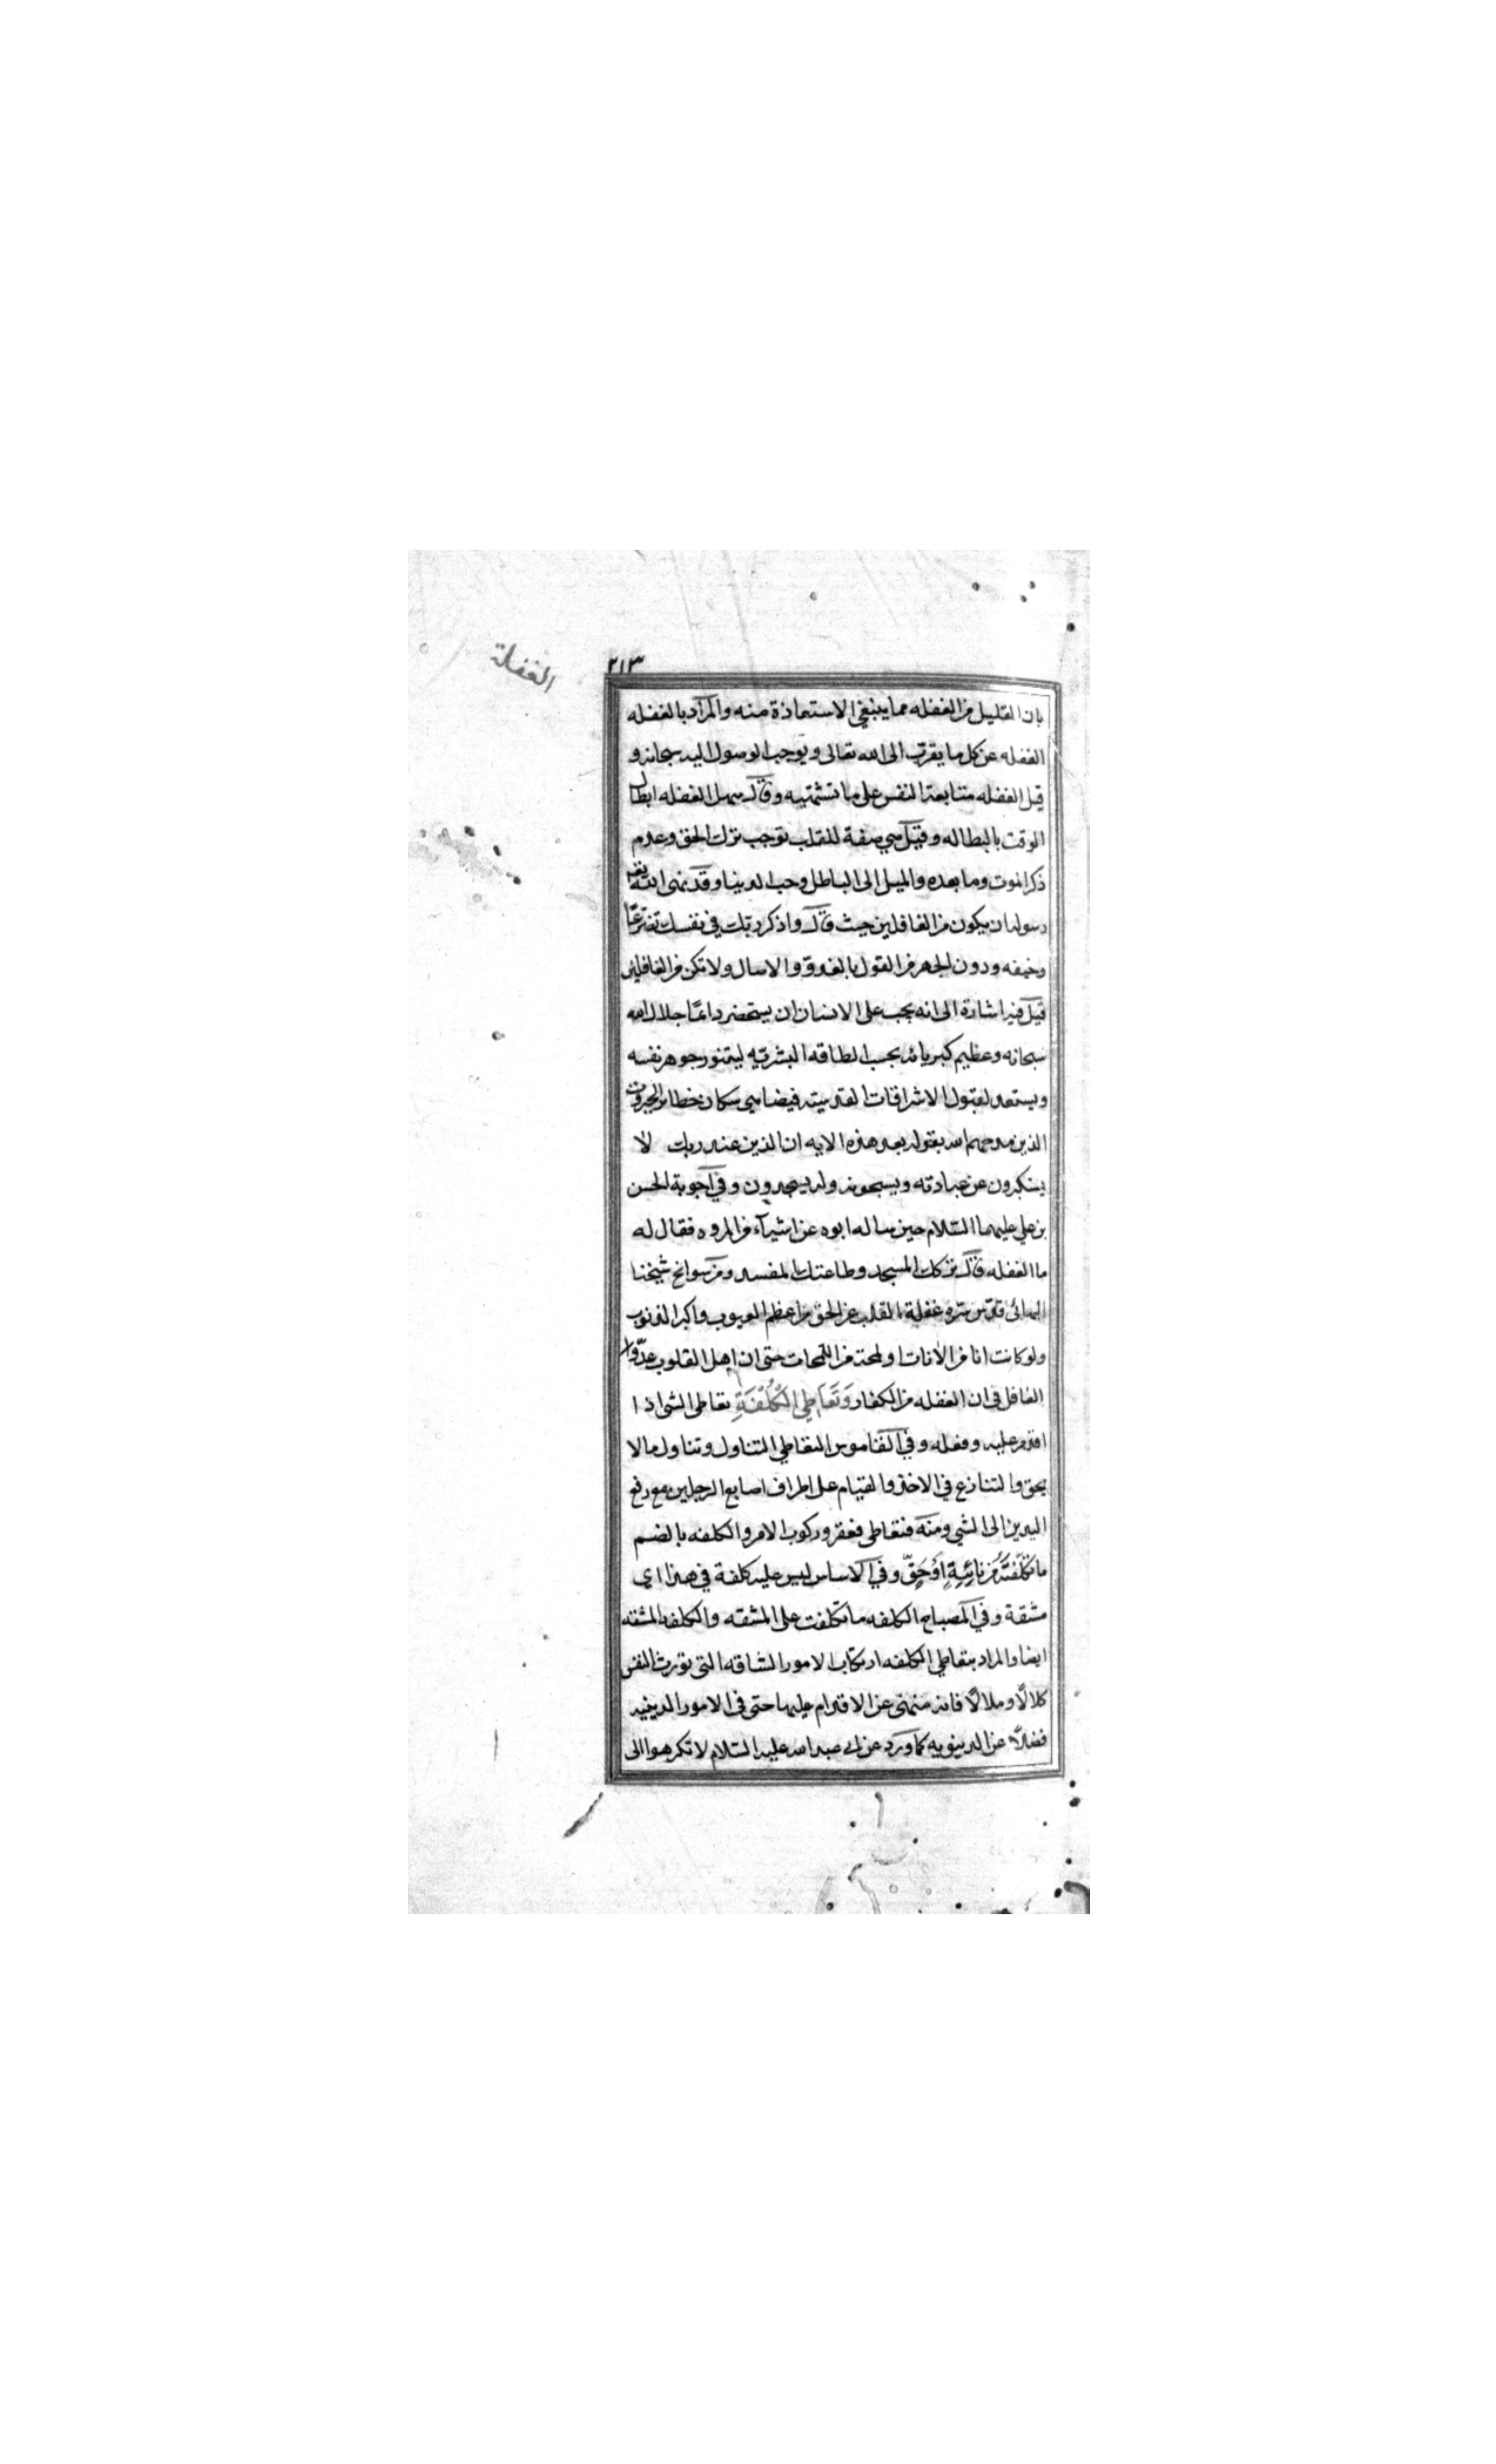 الغفلة
٢١٣
بان القليل من الغفله مما ينبغي الاستعاذة منه والمراد بالغفله
الغفله عن كل ما يقرب الى الله تعالى ويوجب الوصول اليه سبحانه و
قيل الغفله متابعة النفس على ما تشتهيه وقال سهل الغفله ابطال
الوقت بالبطاله وقيل هي صفة للقلب توجب ترك الحق وعدم
ذكر الموت وما بعده والميل الى الباطل وحب الدنيا وقد نهى الله تعالى
رسوله ان يكون من الغافلين حيث قال واذكر ربك في نفسك تضرعًا
وخيفه ودون الجهر من القول بالغدو والاصال ولا تكن من الغافلين
قيل فيه اشارة الى انه يجب على الانسان ان يستحضر دائمًا جلال الله
سبحانه وعظيم كبريائه بحسب الطاقه البشريه ليتنور جوهر نفسه
ويستعد لقبول الاشراقات القدسيه فيضاهي سكان خطائر الجبروت
الذين مدحهم الله بقوله بعد هذه الايه ان الذين عند ربك لا
يستكبرون عن عبادته ويسبحونه وله يسجدون وفي اجوبة الحسن
بن علي عليهما السّلام حين ساله ابوه عن اشيآء من المروه فقال له
ما الغفله قال تركك المسجد وطاعتك المفسد ومن سوانح شيخنا
البهائي قدّس سرّه غفلة القلب عن الحق من اعظم العيوب واكبر الذنوب
ولو كانت انا من الانات او لمحة من اللمحات حتى ان اهل القلوب عدّوا
الغافل في ان الغفله من الكفار وَتَعَاطِي الكُلْفَةِ تعاطى الشي اذا
اقدم عليه وفعله وفي القاموس التعاطي التناول وتناول مالا
يحق والتنازع في الاخذ والقيام على اطراف اصابع الرجلين مع رفع
اليدين الى الشي ومنه فتعاطى فعقر وركوب الامر والكلفه بالضم
ما تكلّفتَهُ من نائبةٍ اوْ حقّ وفي الاساس ليس عليه كلفة في هذا اي
مشقة وفي المصباح الكلفه ما تكلفت على المشقه والكلفه المشقه
ايضا والمراد بتعاطي الكلفه ارتكاب الامور الشاقه التي تورث النفس
كلالًا وملالًا فانه منهي عن الاقدام عليها حتى في الامور الدينيه
فضلًا عن الدينويه كما ورد عن ابي عبد الله عليه السّلام لا تكرهوا الى